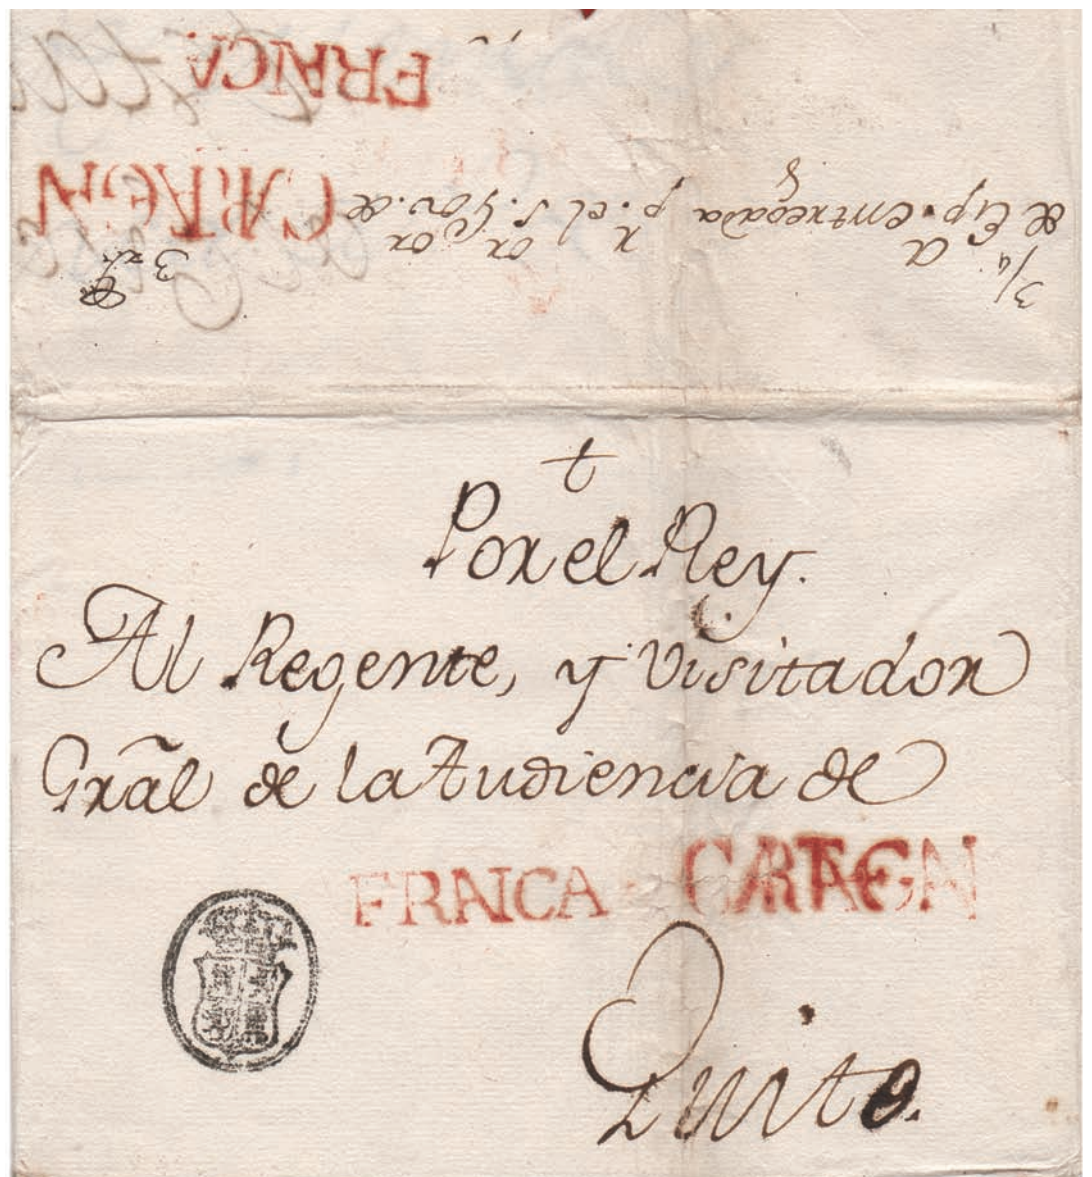 FRANCA
CARTAGEN
3/4 de Exp. entregada p. el S. Gov. de
3
†
Por el Rey.
Al Regente, y Visitador
Gral de la Audiencia de
FRANCA CARTAGEN
Quito.